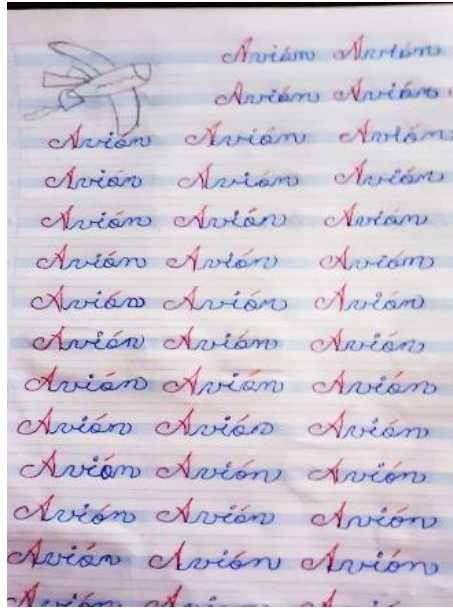 Avión Avión
Avión Avión
Avión Avión Avión
Avión Avión Avión
Avión Avión Avión
Avión Avión Avión
Avión Avión Avión
Avión Avión Avión
Avión Avión Avión
Avión Avión Avión
Avión Avión Avión
Avión Avión Avión
Avión Avión Avión
Avión Avión Avión